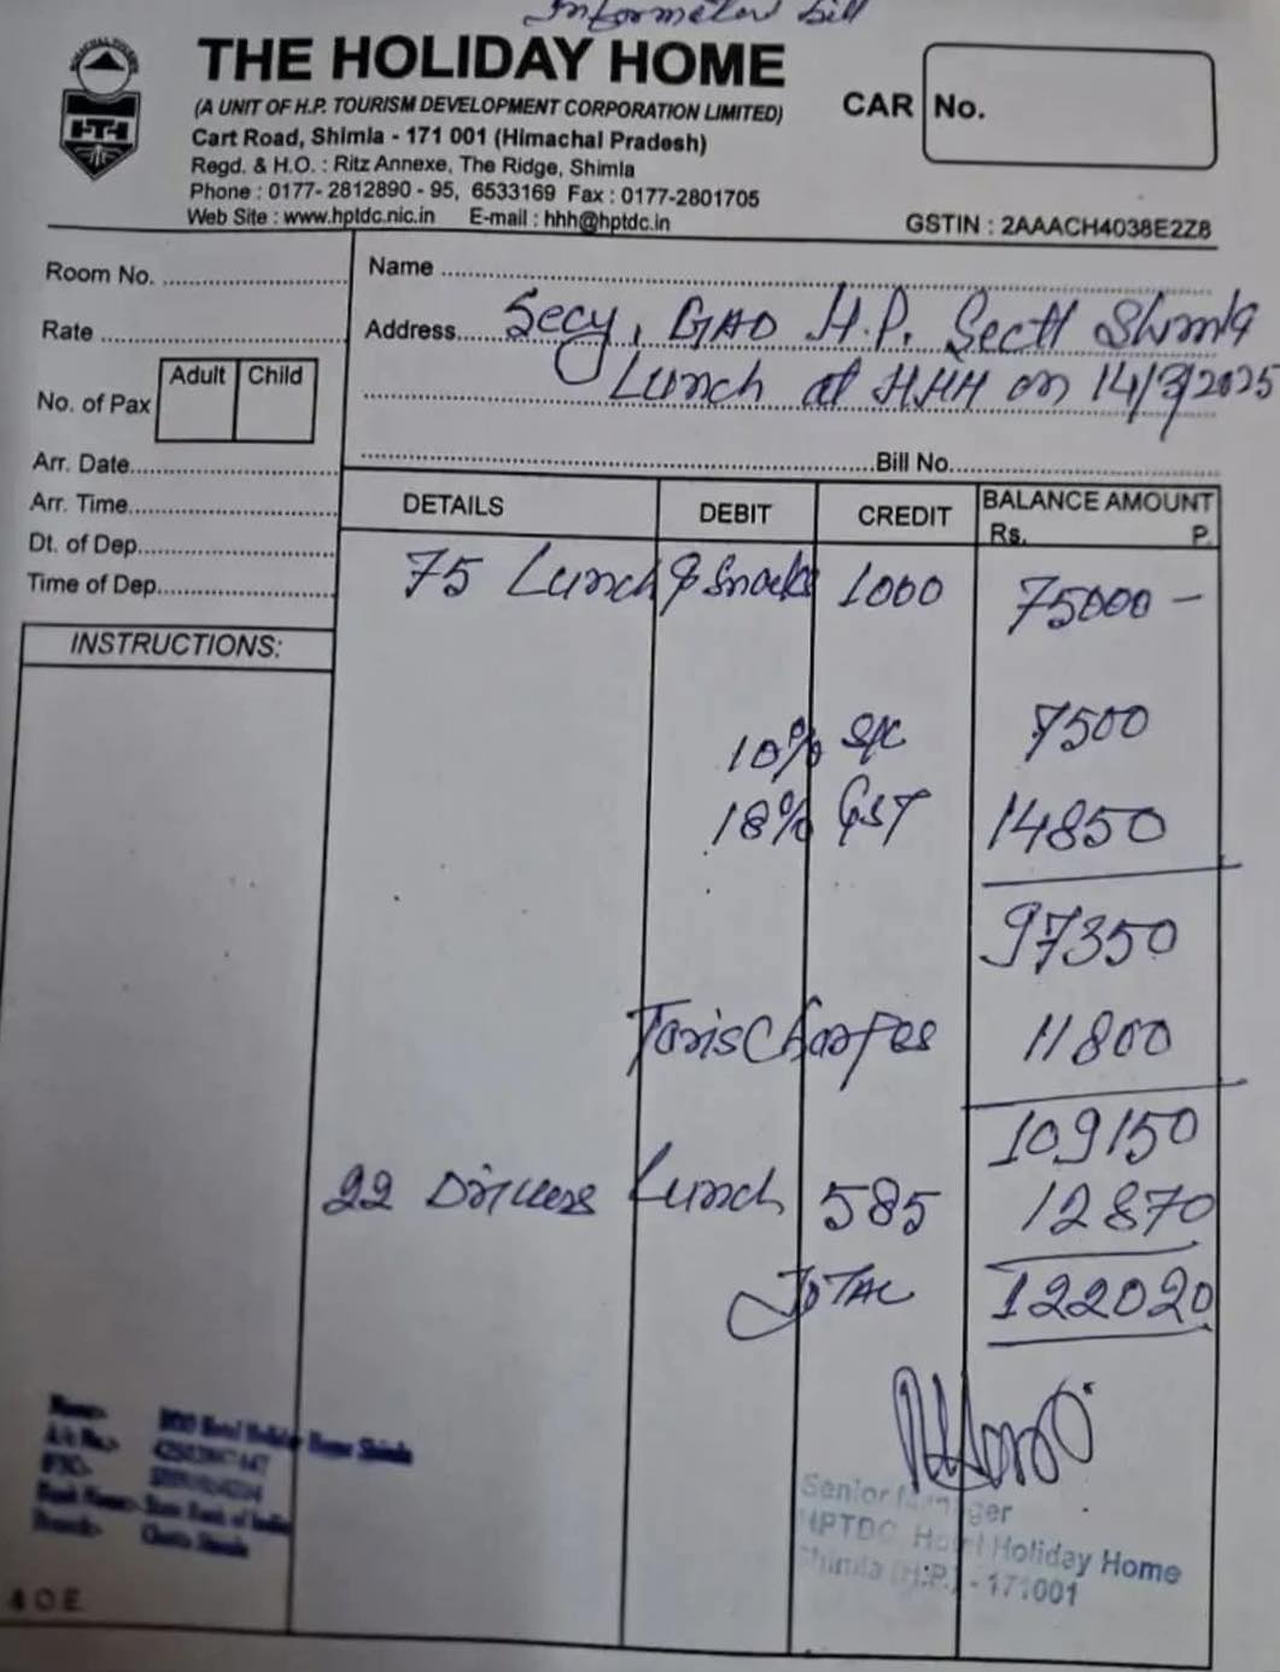 Informator bill
THE HOLIDAY HOME
(A UNIT OF H.P. TOURISM DEVELOPMENT CORPORATION LIMITED)
Cart Road, Shimla - 171 001 (Himachal Pradesh)
Regd. & H.O. : Ritz Annexe, The Ridge, Shimla
Phone : 0177- 2812890 - 95, 6533169 Fax : 0177-2801705
Web Site : www.hptdc.nic.in E-mail : hhh@hptdc.in
CAR No.
GSTIN : 2AAACH4038E2Z8
HTH
Room No.
Rate
No. of Pax
Adult Child
Arr. Date
Arr. Time
Dt. of Dep.
Time of Dep.
INSTRUCTIONS:
Name
Address Secy, GAD H.P. Sectt Shimla
Lunch at HHH on 14/3/2025
Bill No.
DETAILS DEBIT CREDIT BALANCE AMOUNT
Rs. P.
75 Lunch & Snacks 1000 75000 -
10% S/C 7500
18% GST 14850
97350
Charges 11800
109150
22 Drivers Lunch 585 12870
TOTAL 122020
Name:- Hotel Holiday Home Shimla
A/c No.:-
Bank Name:- State Bank of India
Branch:- Shimla
Senior Manager
HPTDC, Hotel Holiday Home
Shimla (H.P.) - 171001